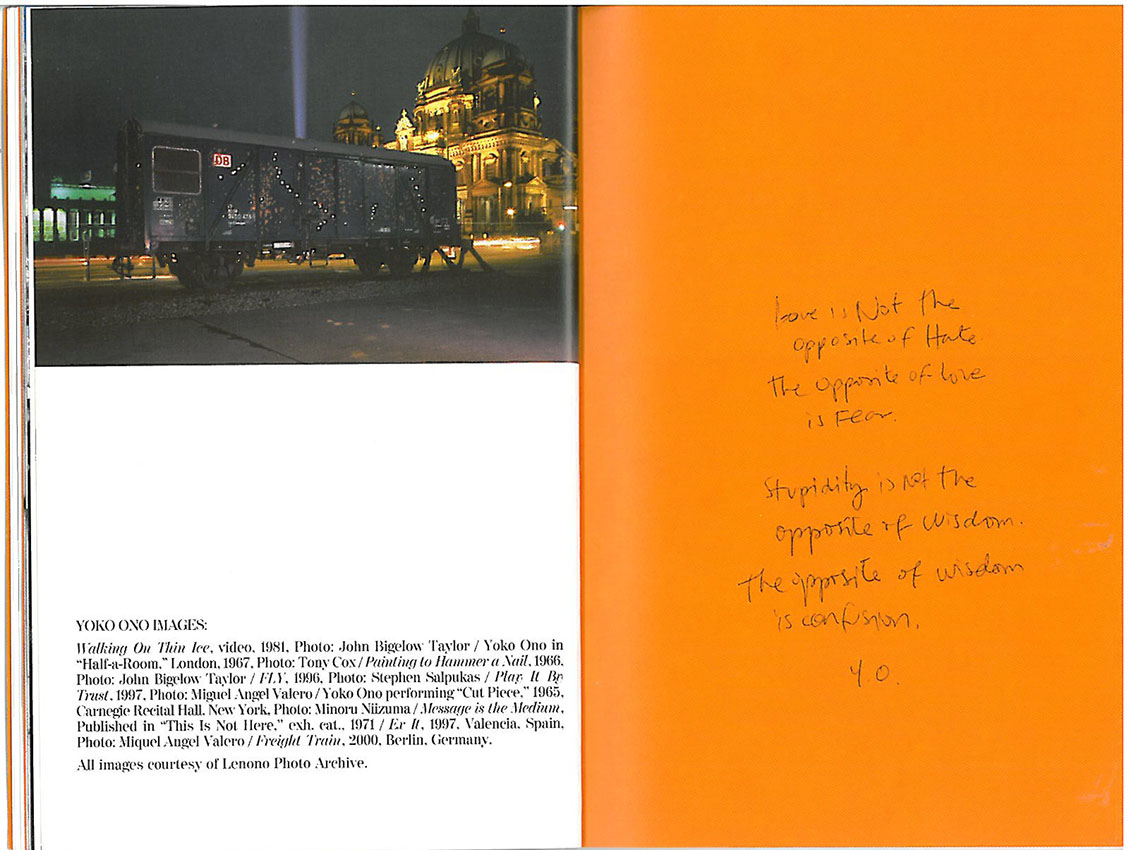 DB
YOKO ONO IMAGES:
Walking On Thin Ice, video, 1981, Photo: John Bigelow Taylor / Yoko Ono in
"Half-a-Room," London, 1967, Photo: Tony Cox / Painting to Hammer a Nail, 1966,
Photo: John Bigelow Taylor / FLY, 1996, Photo: Stephen Salpukas / Play It By
Trust, 1997, Photo: Miguel Angel Valero / Yoko Ono performing "Cut Piece," 1965,
Carnegie Recital Hall, New York, Photo: Minoru Niizuma / Message is the Medium,
Published in "This Is Not Here," exh. cat., 1971 / Ex It, 1997, Valencia, Spain,
Photo: Miquel Angel Valero / Freight Train, 2000, Berlin, Germany.
All images courtesy of Lenono Photo Archive.
Love is Not the
opposite of Hate
the opposite of love
is Fear.
Stupidity is not the
opposite of wisdom.
the opposite of wisdom
is confusion.
Y.O.